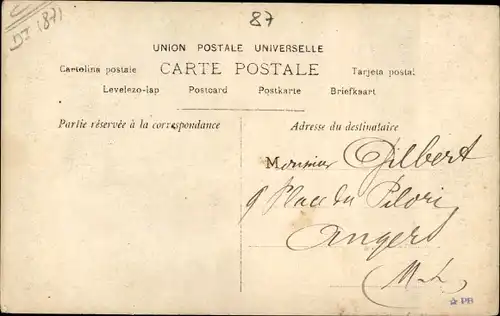 DJ (87)
87
UNION POSTALE UNIVERSELLE
Cartolina postale CARTE POSTALE Tarjeta postal
Levelezo-lap Postcard Postkarte Briefkaart
Partie réservée à la correspondance
Adresse du destinataire
Monsieur Gilbert
9 Place du Pilori
Angers
M-L
☆ PB